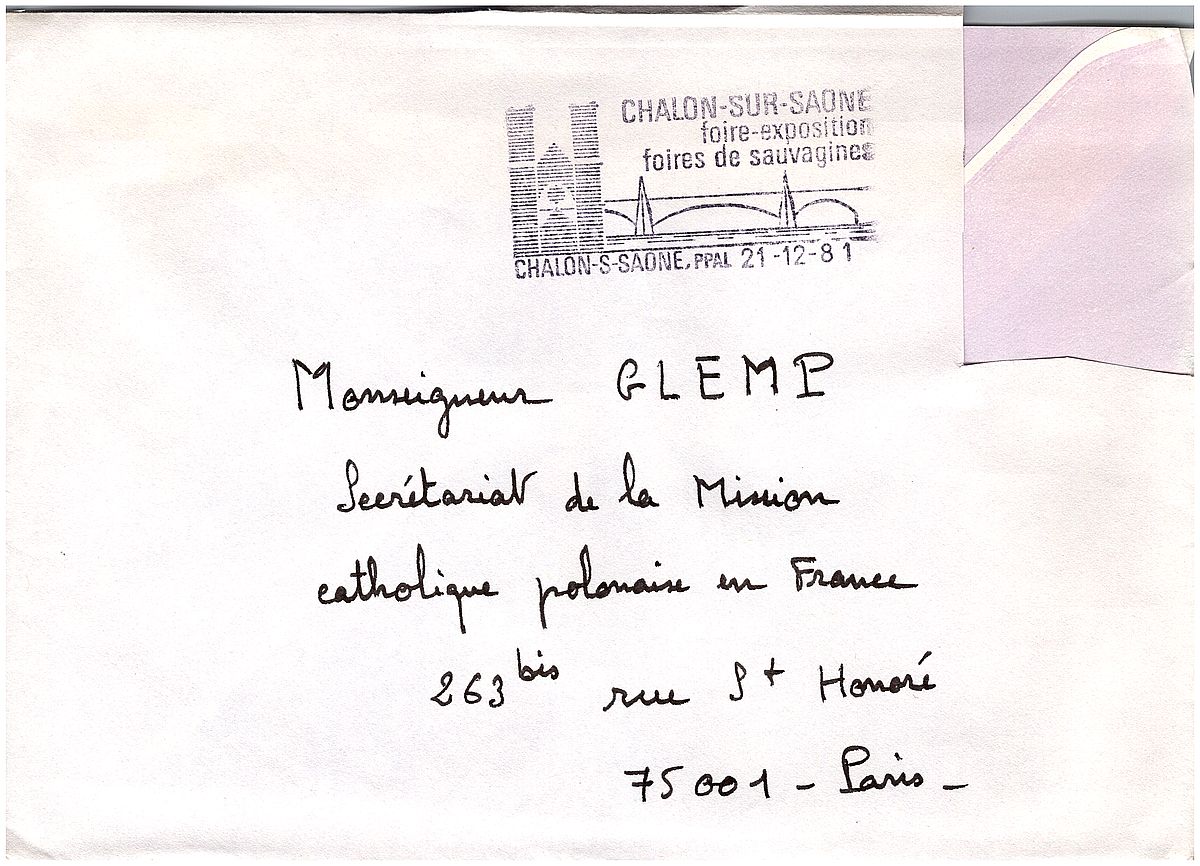 CHALON-SUR-SAONE
foire-exposition
foires de sauvagines
CHALON-S-SAONE, PPAL 21-12-81
Monseigneur GLEMP
Secrétariat de la Mission
catholique polonaise en France
263 bis rue St Honoré
75001 - Paris -